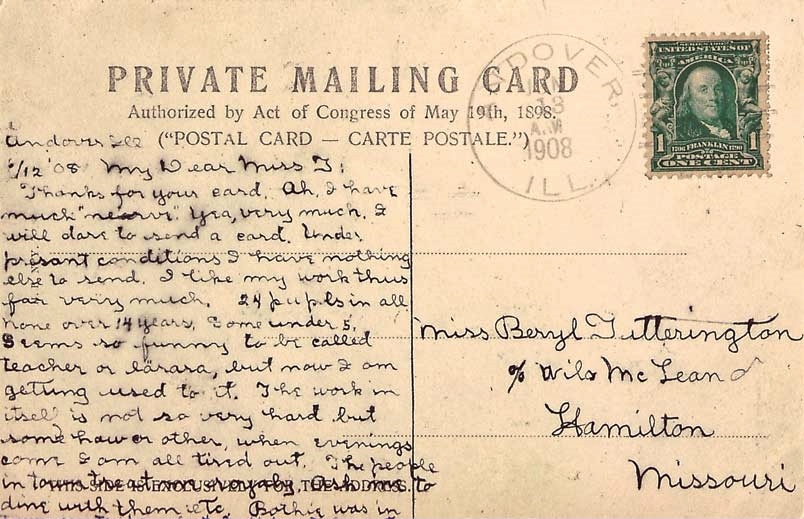 PRIVATE MAILING CARD
Authorized by Act of Congress of May 19th, 1898.
("POSTAL CARD — CARTE POSTALE.")
ANDOVER,
13
A.M
1908
ILL.
SERIES 1902
UNITED STATES OF
AMERICA
1 1
1706 FRANKLIN 1790
POSTAGE
ONE CENT
Andover Ill
/12 '08 My Dear Miss T:
Thanks for your card. Ah, I have
much "nearve". Yea, very much. I
will dare to send a card. Under
presant conditions I have nothing
else to send. I like my work thus
far very much. 24 pupils in all
none over 14 years, some under 5.
Seems so funny to be called
teacher or lärara, but now I am
getting used to it. The work in
itself is not so very hard but
some how or other, when evenings
come I am all tired out. The people
in town treat me royaly. Ask me to
dine with them etc. Bothie was in
THIS SIDE IS EXCLUSIVELY FOR THE ADDRESS.
Miss Beryl Tutterington
% Wils McLean
Hamilton
Missouri